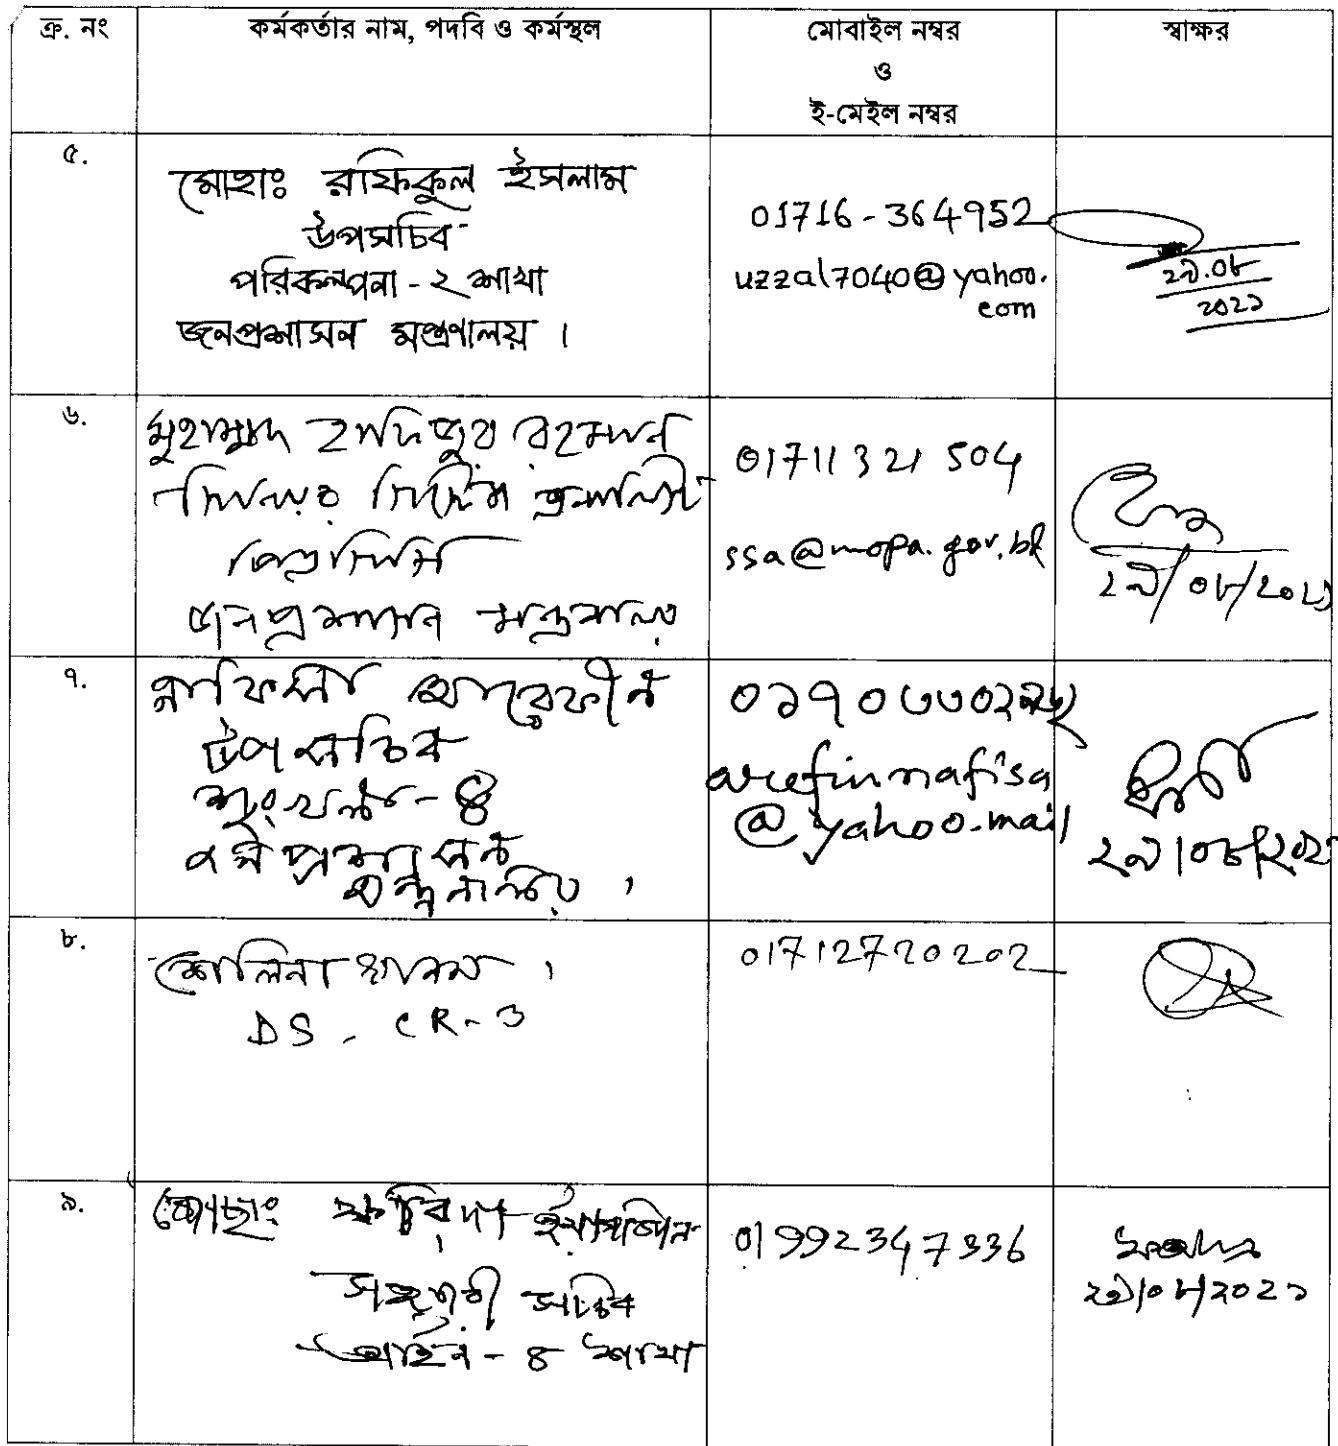 ক্র. নং
কর্মকর্তার নাম, পদবি ও কর্মস্থল
মোবাইল নম্বর
ও
ই-মেইল নম্বর
স্বাক্ষর
৫.
মোহাঃ রফিকুল ইসলাম
উপসচিব
পরিকল্পনা - ২ শাখা
জনপ্রশাসন মন্ত্রণালয় ।
01716-364952
uzzal7040@yahoo.
com
২৯.০৮
২০২১
৬.
মুহাম্মদ হাফিজুর রহমান
সিনিয়র সিস্টেম এনালিস্ট
পিএসিসি
জনপ্রশাসন মন্ত্রণালয়
01711321504
ssa@mopa.gov.bd
২৯/০৮/২০২১
৭.
নাফিসা আরেফীন
উপসচিব
শৃংখলা-৪
জনপ্রশাসন
মন্ত্রনালয় ।
arefinnafisa
@yahoo.mail
২৯/০৮/২০২
৮.
সেলিনা খানম ।
DS - CR-3
01712720202
৯.
মোছাঃ ফরিদা ইয়াসমিন
সহকারী সচিব
আইন - ৪ শাখা
01992347336
২৯/০৮/২০২১